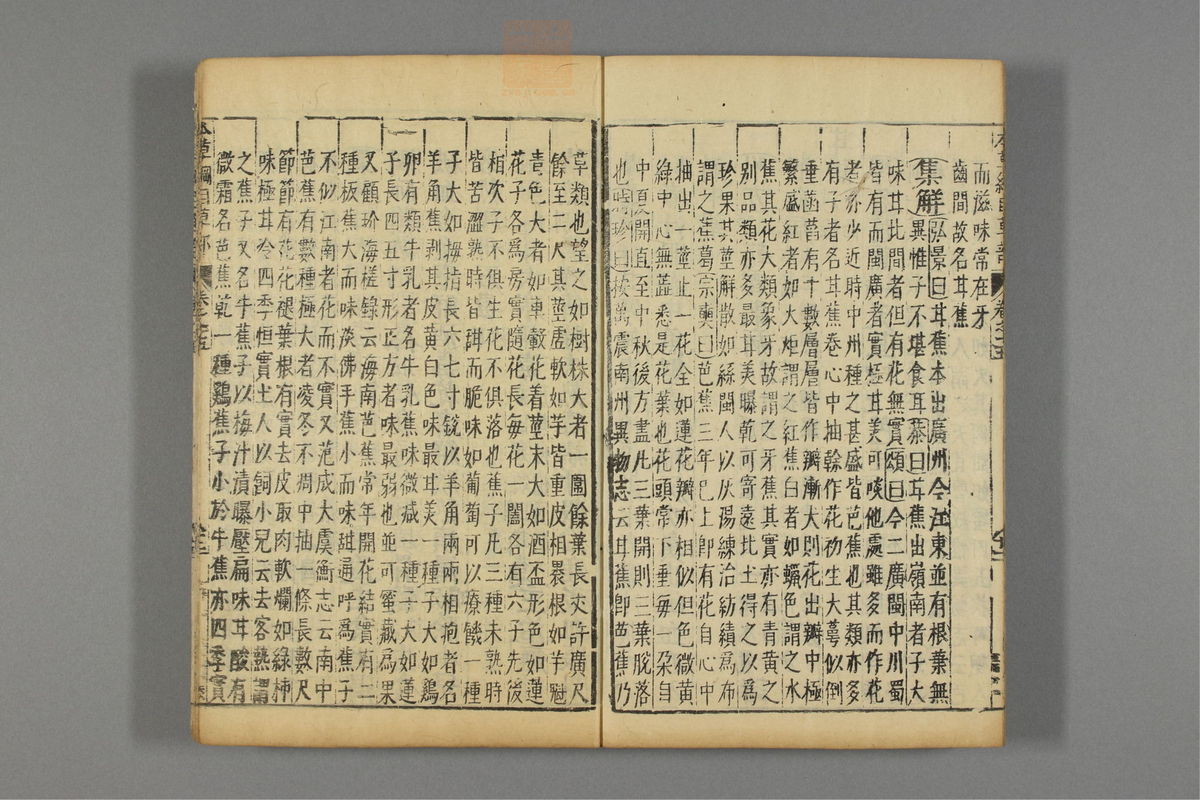 而滋味常在牙
齒間故名甘蕉
集解弘景曰甘蕉本出廣州今江東並有根葉無
異惟子不堪食耳恭曰甘蕉出嶺南者子大
味甘北間者但有花無實頌曰今二廣閩中川蜀
皆有而閩廣者實極甘美可啖他處雖多而作花
者亦少近時中州種之甚盛皆芭蕉也其類亦多
有子者名甘蕉卷心中抽榦作花初生大萼似倒
垂菡萏有十數層層皆作瓣漸大則花出瓣中極
繁盛紅者如火炬謂之紅蕉白者如蠟色謂之水
蕉其花大類象牙故謂之牙蕉其實亦有青黃之
別品類亦多最甘美曝乾可寄遠北土得之以爲
珍果其莖解散如絲閩人以灰湯練治紡績爲布
謂之蕉葛宗奭曰芭蕉三年已上卽有花自心中
抽出一莖止一花全如蓮花瓣亦相似但色微黃
綠中心無蕋悉是花葉也花頭常下垂每一朶自
中夏開直至中秋後方盡凡三葉開則三葉脫落
也時珍曰按萬震南州異物志云甘蕉卽芭蕉乃
草類也望之如樹株大者一圍餘葉長丈許廣尺
餘至二尺其莖虛軟如芋皆重皮相裹根如芋魁
青色大者如車轂花着莖末大如酒盃形色如蓮
花子各爲房實隨花長每花一闔各有六子先後
相次子不俱生花不俱落也蕉子凡三種未熟時
皆苦澀熟時皆甜而脆味如葡萄可以療饑一種
子大如拇指長六七寸銳以羊角兩兩相抱者名
羊角蕉剥其皮黃白色味最甘美一種子大如鷄
卵有類牛乳者名牛乳蕉味微减一種子大如蓮
子長四五寸形正方者味最弱也並可蜜藏爲果
又顧玠海槎錄云海南芭蕉常年開花結實有二
種板蕉大而味淡佛手蕉小而味甜通呼爲蕉子
不似江南者花而不實又范成大虞衡志云南中
芭蕉有數種極大者凌冬不凋中抽一條長數尺
節節有花花褪葉根有實去皮取肉軟爛如綠柿
味極甘冷四季恒實土人以飼小兒云去客熱謂
之蕉子又名牛蕉子以梅汁漬曝壓扁味甘酸有
微霜名芭蕉乾一種鷄蕉子小於牛蕉亦四季實